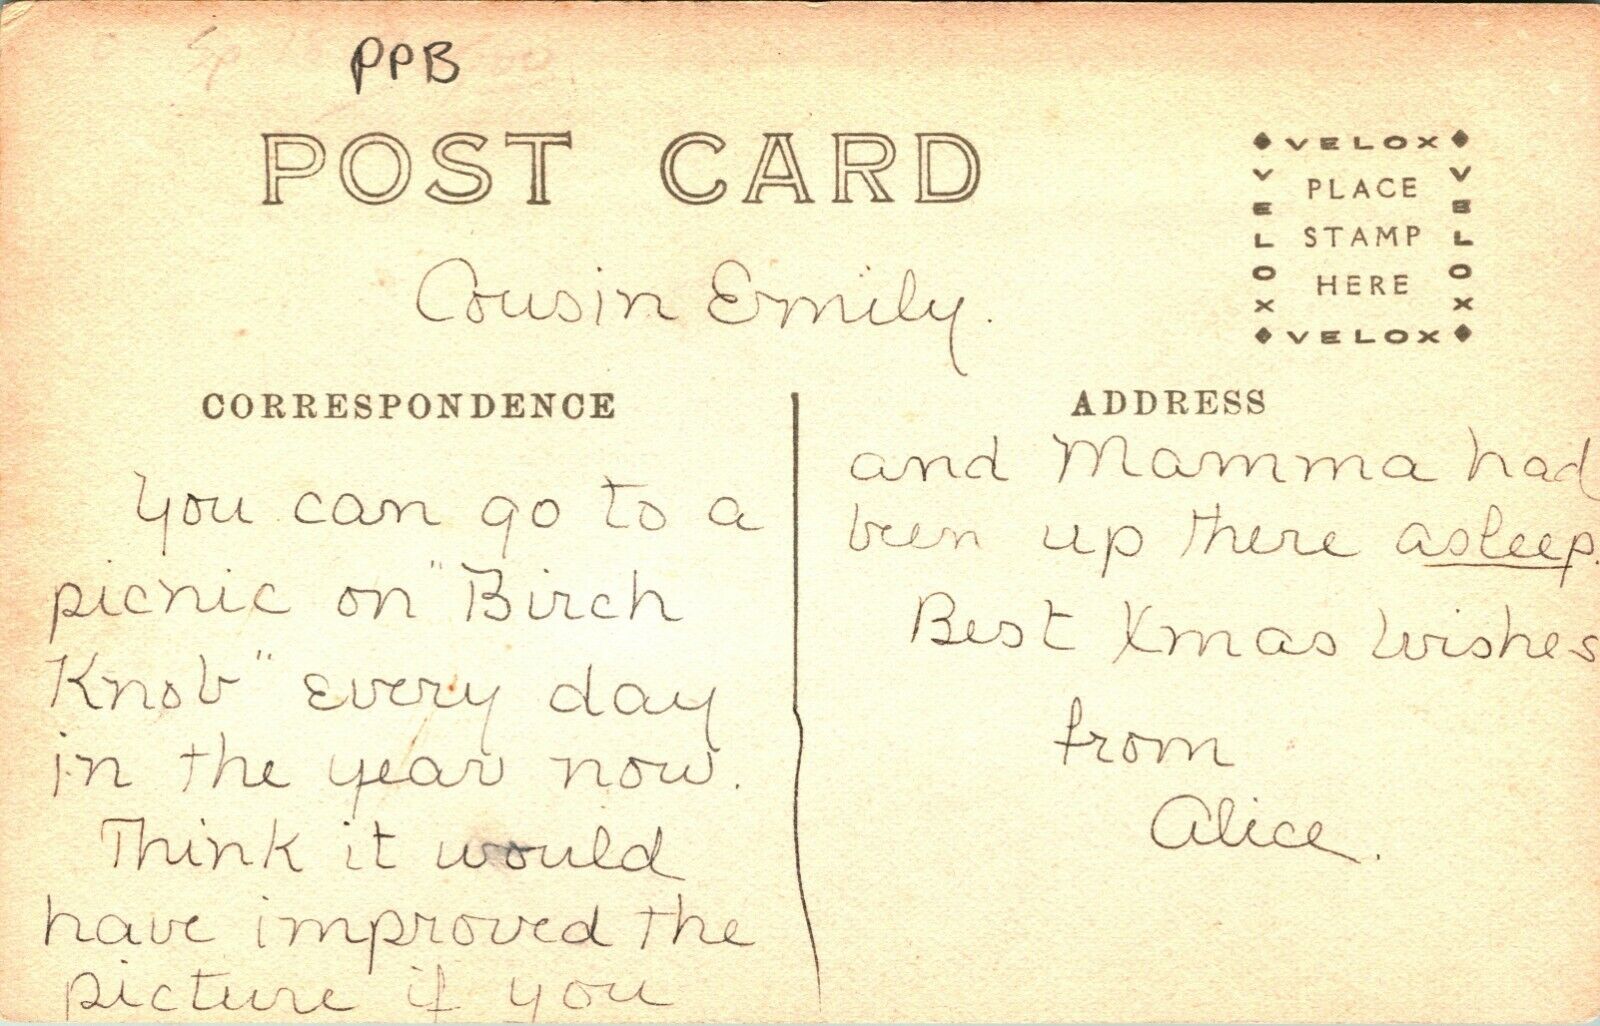 PPB
POST CARD
VELOX
VELOX
PLACE
STAMP
HERE
VELOX
VELOX
Cousin Emily.
CORRESPONDENCE
You can go to a
picnic on "Birch
Knob" every day
in the year now.
Think it would
have improved the
picture if you
ADDRESS
and Mamma had
been up there asleep.
Best Xmas Wishes
from
Alice.